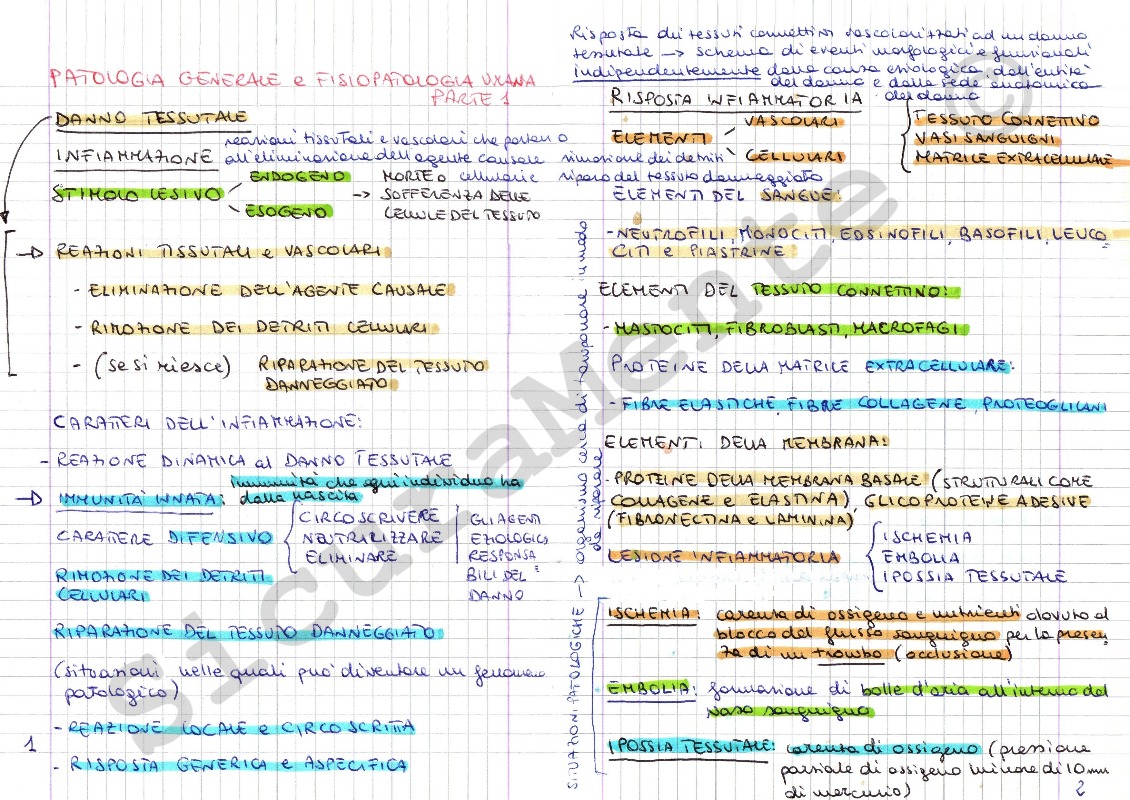 PATOLOGIA GENERALE e FISIOPATOLOGIA UMANA
PARTE 1
DANNO TESSUTALE
INFIAMMAZIONE
reazioni tissutali e vascolari che portano
all'eliminazione dell'agente causale rimozione dei detriti
cellulari e riparo del tessuto danneggiato
STIMOLO LESIVO
ENDOGENO
ESOGENO
MORTE O
→ SOFFERENZA DELLE
CELLULE DEL TESSUTO
→ REAZIONI TISSUTALI e VASCOLARI
- ELIMINAZIONE DELL'AGENTE CAUSALE
- RIMOZIONE DEI DETRITI CELLULARI
- (se si riesce) RIPARAZIONE DEL TESSUTO
DANNEGGIATO
CARATTERI DELL'INFIAMMAZIONE:
- REAZIONE DINAMICA al DANNO TESSUTALE
→ IMMUNITÀ INNATA: immunità che ogni individuo ha
dalla nascita
CARATTERE DIFENSIVO
CIRCOSCRIVERE
NEUTRILIZZARE
ELIMINARE
GLI AGENTI
EZIOLOGICI
RESPONSA
BILI DEL
DANNO
RIMOZIONE DEI DETRITI
CELLULARI
RIPARAZIONE DEL TESSUTO DANNEGGIATO
(situazioni nelle quali può diventare un fenomeno
patologico)
- REAZIONE LOCALE e CIRCOSCRITTA
- RISPOSTA GENERICA e ASPECIFICA
1
Risposta dei tessuti connettivi vascolarizzati ad un danno
tessutale → schema di eventi morfologici e funzionali
indipendentemente dalla causa eziologica, dall'entità
del danno e dalla sede anatomica
del danno
RISPOSTA INFIAMMATORIA
ELEMENTI
VASCOLARI
CELLULARI
TESSUTO CONNETTIVO
VASI SANGUIGNI
MATRICE EXTRACELLULARE
ELEMENTI DEL SANGUE:
- NEUTROFILI, MONOCITI, EOSINOFILI, BASOFILI, LEUCO
CITI e PIASTRINE
ELEMENTI DEL TESSUTO CONNETTIVO:
- MASTOCITI, FIBROBLASTI, MACROFAGI
PROTEINE DELLA MATRICE EXTRACELLULARE:
- FIBRE ELASTICHE, FIBRE COLLAGENE, PROTEOGLICANI
ELEMENTI DELLA MEMBRANA:
- PROTEINE DELLA MEMBRANA BASALE (STRUTTURALI COME
COLLAGENE e ELASTINA), GLICOPROTEINE ADESIVE
(FIBRONECTINA e LAMININA)
LESIONE INFIAMMATORIA
ISCHEMIA
EMBOLIA
IPOSSIA TESSUTALE
SITUAZIONI PATOLOGICHE → organismo cerca di tamponare in modo
da riparare
ISCHEMIA: carenza di ossigeno e nutrienti dovuto al
blocco del flusso sanguigno per la presen
za di un trombo (occlusione)
EMBOLIA: formazione di bolle d'aria all'interno del
vaso sanguigno
IPOSSIA TESSUTALE: carenza di ossigeno (pressione
parziale di ossigeno minore di 10 mm
di mercurio)
2
©
SicuraMente